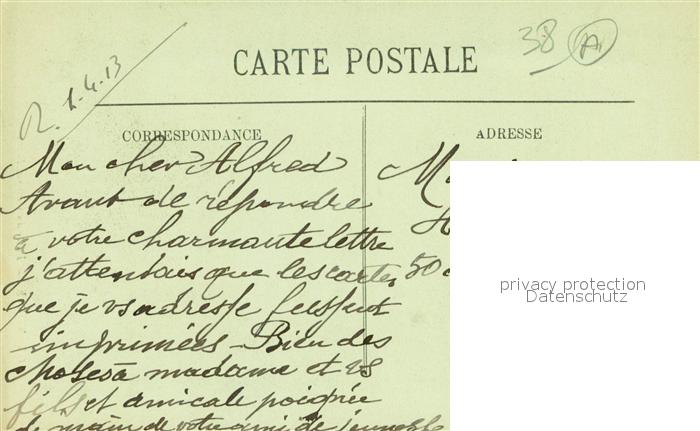 38 A
CARTE POSTALE
R. 1.4.13
CORRESPONDANCE
ADRESSE
Mon cher Alfred
Avant de répondre
à votre charmante lettre
j'attendais que les cartes
que je vs adresse fussent
imprimées - Bien des
choses à madame et vs
fils et amicale poignée
de main de votre ami de jeunesse
M
50
privacy protection
Datenschutz